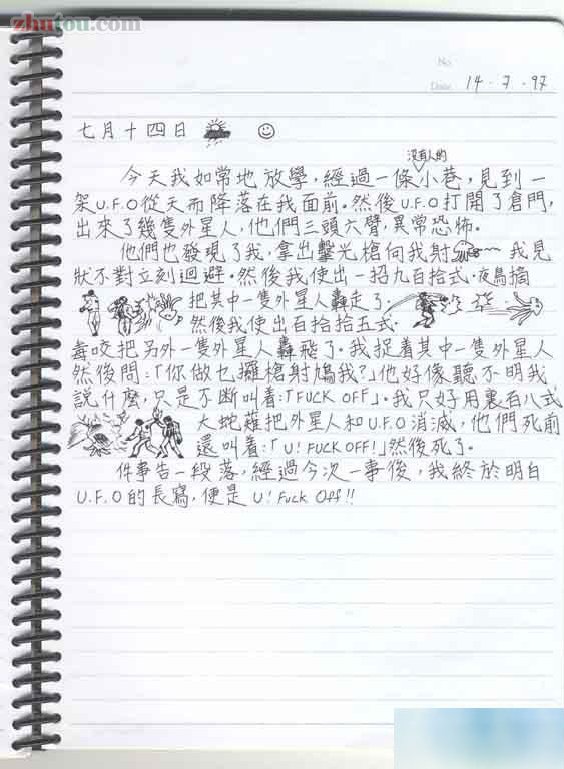 zhutou.com
No
Date 14 · 7 · 97
七月十四日
沒有人的
今天我如常地放學,經過一條小巷,見到一
架U.F.O從天而降落在我面前。然後U.F.O打開了倉門,
出來了幾隻外星人,他們三頭六臂,異常恐怖。
他們也發現了我,拿出擊光槍向我射 我見
狀不對立刻迴避。然後我使出一招九百拾式·夜鳥摘
把其中一隻外星人轟走了。
然後我使出百拾拾五式·
毒咬把另外一隻外星人轟飛了。我捉着其中一隻外星人
然後問:「你做乜攞槍射鳩我?」他好像聽不明我
說什麼,只是不斷叫着:「FUCK OFF」。我只好用裏百八式
大蛇薙把外星人和U.F.O消滅,他們死前
還叫着:「U! FUCK OFF!」然後死了。
件事告一段落,經過今次一事後,我終於明白
U.F.O的長寫,便是 U! Fuck Off!!